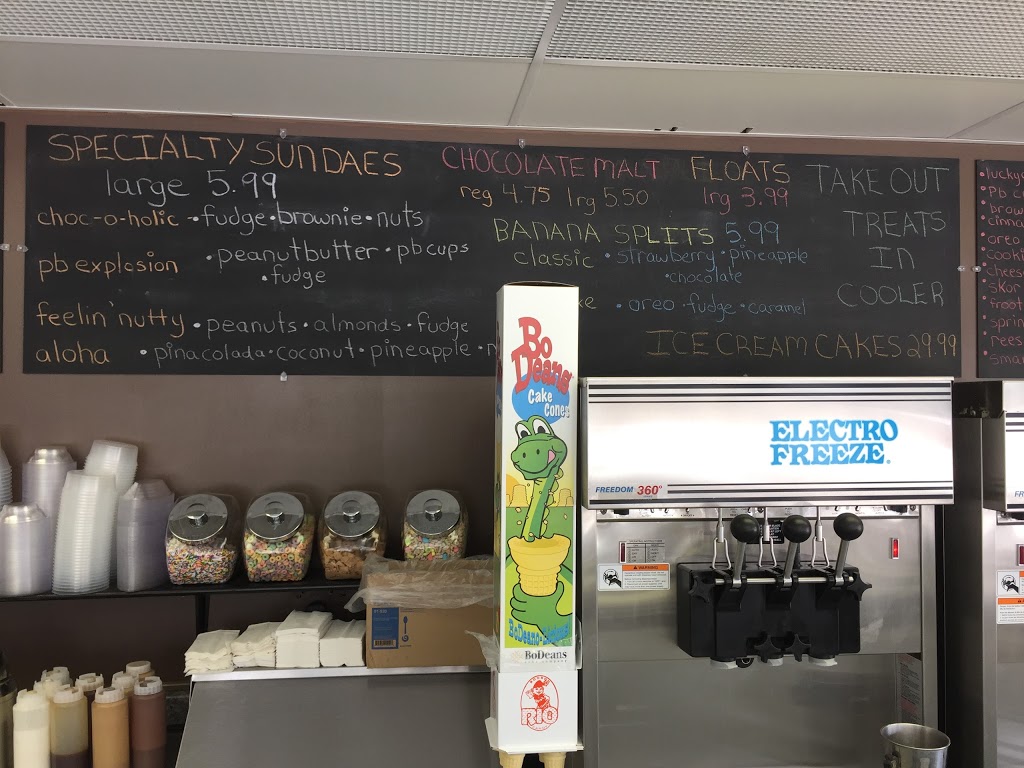 SPECIALTY SUNDAES
large 5.99
choc-o-holic • fudge • brownie • nuts
pb explosion • peanutbutter • pb cups
• fudge
feelin' nutty • peanuts • almonds • fudge
aloha • pinacolada • coconut • pineapple •
CHOCOLATE MALT
reg 4.75 lrg 5.50
FLOATS
lrg 3.99
BANANA SPLITS 5.99
classic • strawberry • pineapple
• chocolate
• oreo • fudge • caramel
TAKE OUT
TREATS
IN
COOLER
ICE CREAM CAKES 29.99
• oreo
Bo
Deans
Cake
Cones
BoDeans
RIO
ELECTRO
FREEZE
FREEDOM 360°
WARNING